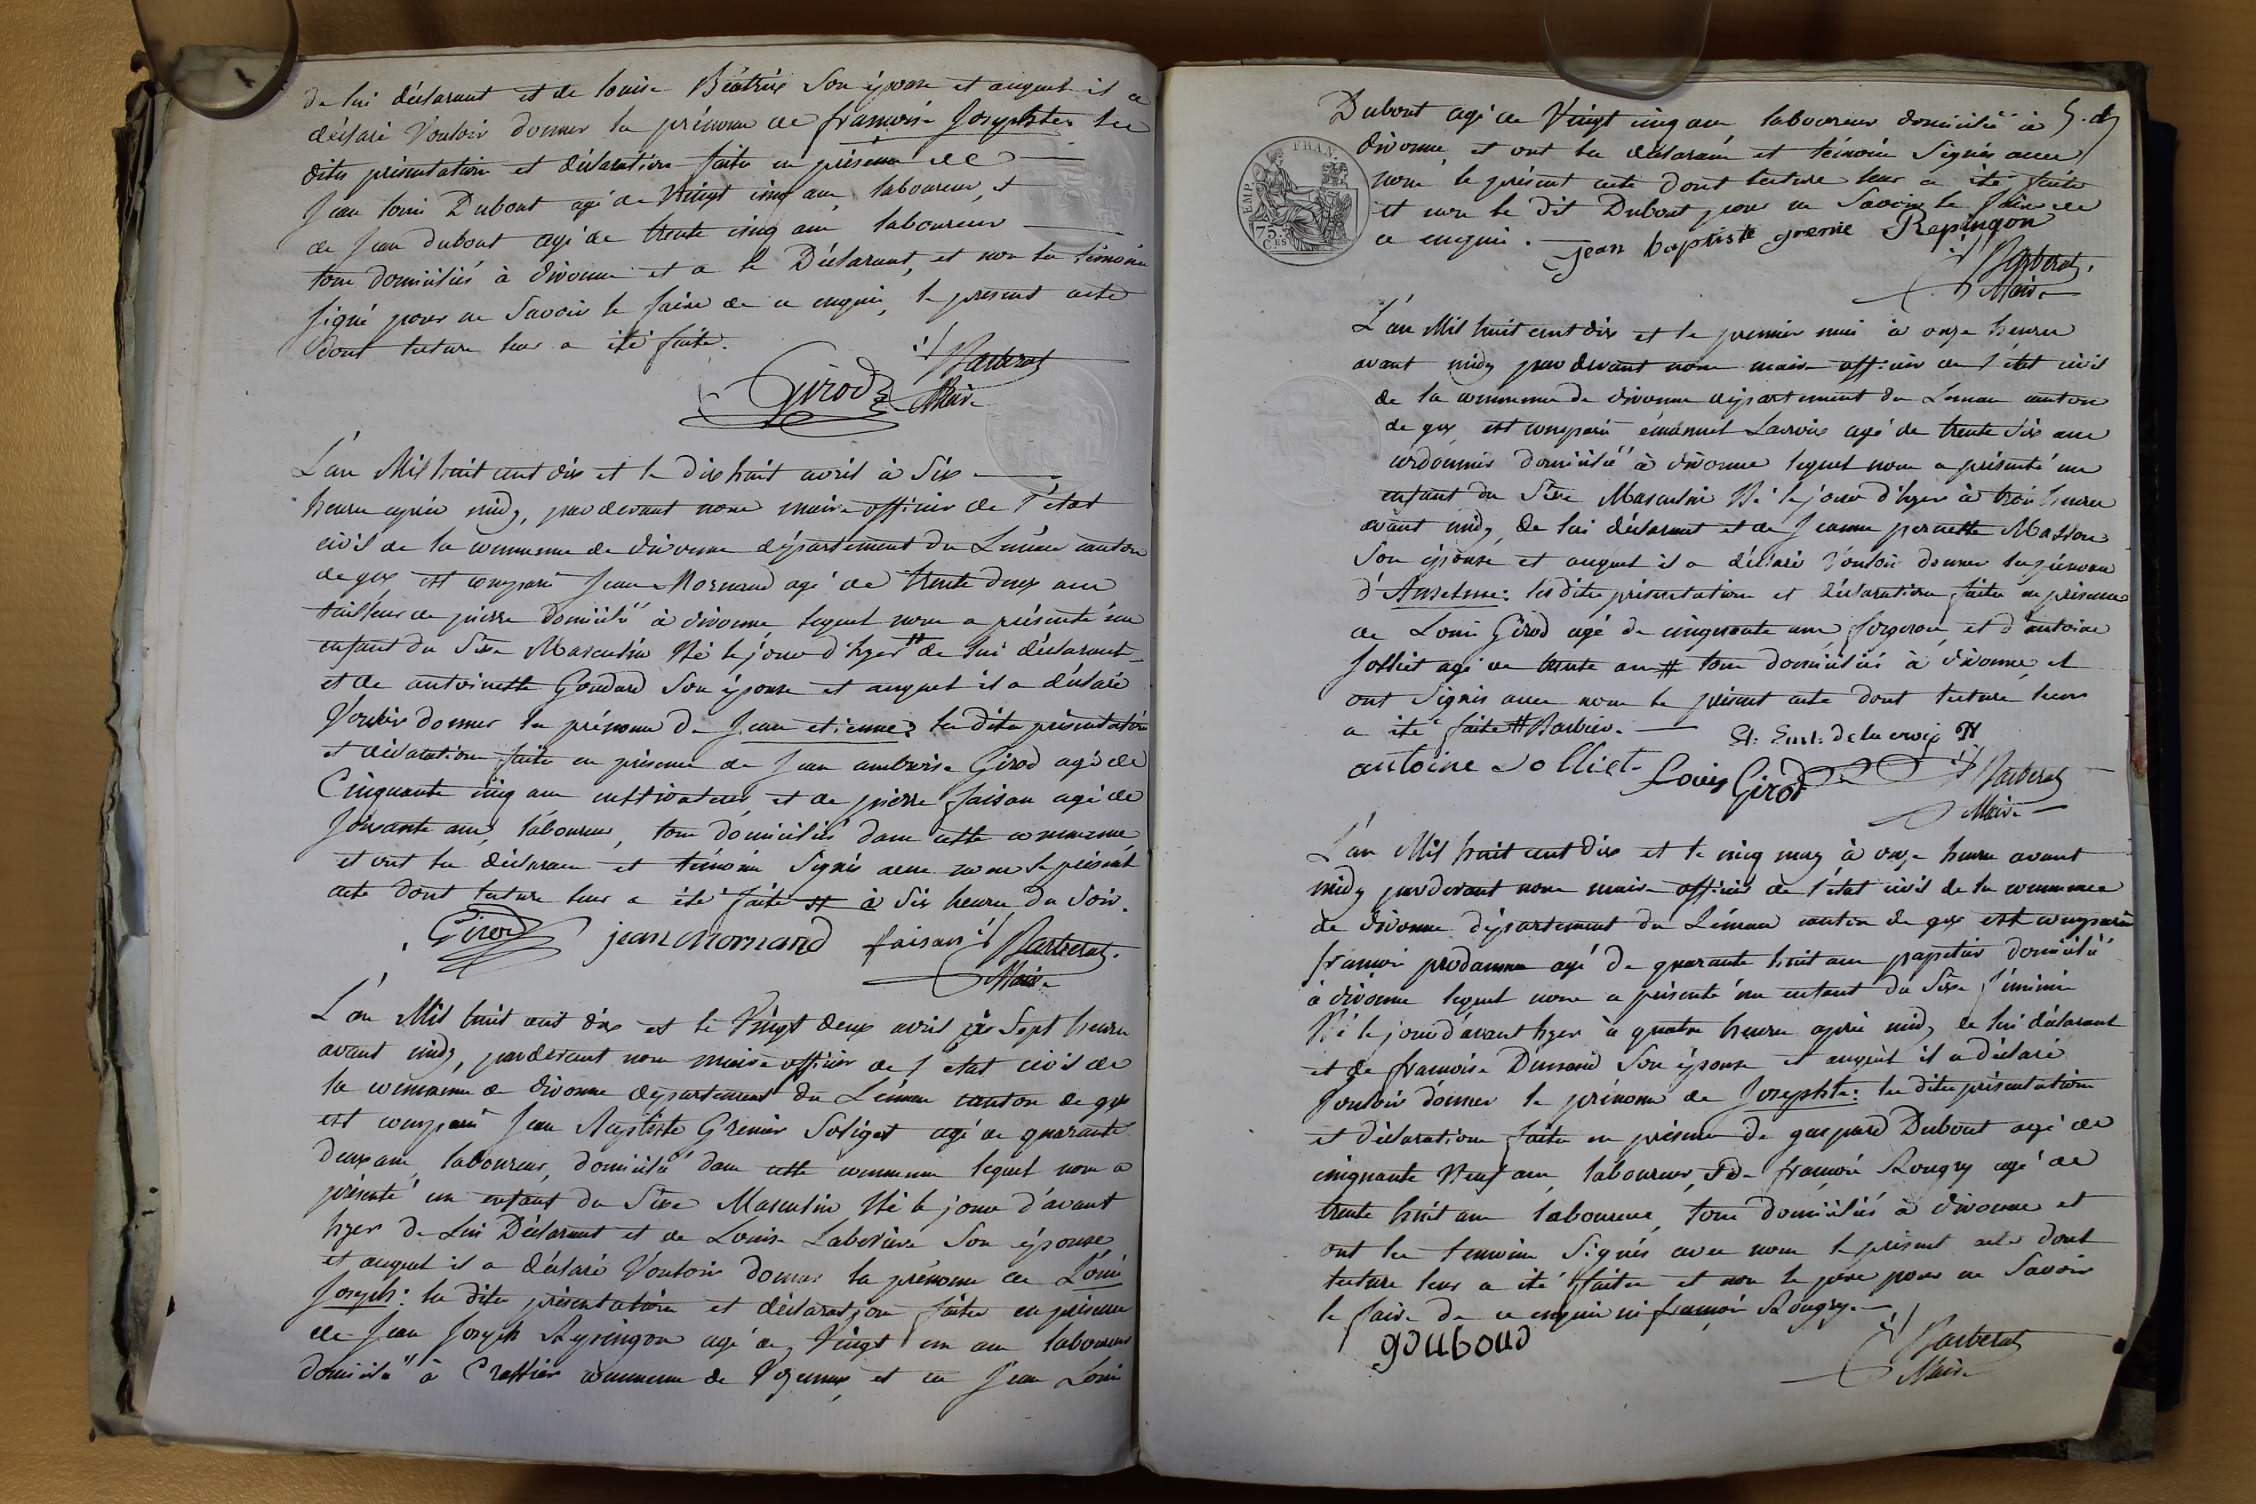 de lui déclarant et de louise Béatrix Son épouse et auquel il a
déclaré Vouloir donner les prénoms de françoise Josephte: les
dites présentation et déclaration faites en présence de
Jean louis Dubout agé de Vingt cinq ans laboureur, et
de Jean dubout agé de trente cinq ans laboureur
tous domiciliés à divonne et a le Déclarant, et non les témoins
signé pour ne Savoir le faire de ce enquis, le present acte
dont lecture leur a été faite.
Girod
Barberat
Maire
L'an Mil huit cent dix et le dix huit avril à Six
heures après midy, pardevant nous maire officier de l'état
civil de la commune de divonne département du Léman canton
de gex est comparu Jean Mornand agé de trente deux ans
tailleur de pierre domicilié à divonne lequel nous a présenté un
enfant du Sexe Masculin Né le jour d'hyer # de lui déclarant
et de antoinette Goudard Son épouse et auquel il a déclaré
Vouloir donner les prénoms de Jean etienne: les dites présentation
et déclaration faites en présence de Jean ambroise Girod agé de
Cinquante cinq ans cultivateur et de pierre faisan agé de
Soixante ans, laboureur, tous domiciliés dans cette commune
et ont les déclarans et témoins Signés avec nous le présent
acte dont lecture leur a été faite # à Six heures du Soir.
Girod jean mornand faisan Barberat
Maire
L'an Mil huit cent dix et le Vingt deux avril à Sept heures
avant midy, pardevant nous maire officier de l'état civil de
la commune de divonne département du Léman canton de gex
est comparu Jean Baptiste Grenier Soliget agé de quarante
deux ans, laboureur, domicilié dans cette commune lequel nous a
présenté un enfant du Sexe Masculin Né le jour d'avant
hyer de Lui Déclarant et de Louise Son épouse
et auquel il a déclaré Vouloir donner les prénoms de Louis
Joseph: les dites présentation et déclaration faites en présence
de Jean Joseph Repingon agé de Vingt un ans laboureur
domicilié à Crassier commune de et de Jean Louis
Dubout agé de Vingt cinq ans, laboureur domicilié à
divonne, et ont les déclarans et témoins Signés avec
nous le présent acte dont lecture leur a été faite
et non le dit Dubout pour ne Savoir le faire de
ce enquis.
EMP. FRAN.
75 Ces
jean baptiste grenie Repingon
Barberat
Maire
L'an Mil huit cent dix et le premier mai à onze heures
avant midy pardevant nous maire officier de l'état civil
de la commune de divonne département du Leman canton
de gex est comparu émanuel Lacroix agé de trente Six ans
cordonnier domicilié à divonne lequel nous a présenté un
enfant du Sexe Masculin Né le jour d'hyer à trois heures
avant midy, de lui déclarant et de Jeanne pernette Masson
Son épouse et auquel il a déclaré Vouloir donner le prénom
d'Anselme: les dites présentation et déclaration faites en présence
de Louis Girod agé de cinquante ans forgeron, et d'antoine
Jolliet agé de trente ans # tous domiciliés à divonne, et
ont Signés avec nous le présent acte dont lecture leur
a été faite # Barbier.
delacroix
antoine Jolliet Louis Girod Barberat
Maire
L'an Mil huit cent dix et le cinq may à onze heures avant
midy pardevant nous maire officier de l'état civil de la commune
de divonne département du Léman canton de gex est comparu
françois agé de quarante huit ans papetier domicilié
à divonne lequel nous a présenté un enfant du Sexe féminin
Né le jour d'avant hyer à quatre heures après midy de lui déclarant
et de françoise Durand Son épouse et auquel il a déclaré
Vouloir donner le prénom de Josephte: les dites présentation
et déclaration faites en présence de gaspard Dubout agé de
cinquante Neuf ans, laboureur, & de françois Rougry agé de
trente huit ans laboureur, tous domiciliés à divonne et
ont les temoins Signés avec nous le présent acte dont
lecture leur a été faite et non le père pour ne Savoir
le faire de ce enquis ni françois Rougry.
gduboud
Barberat
Maire